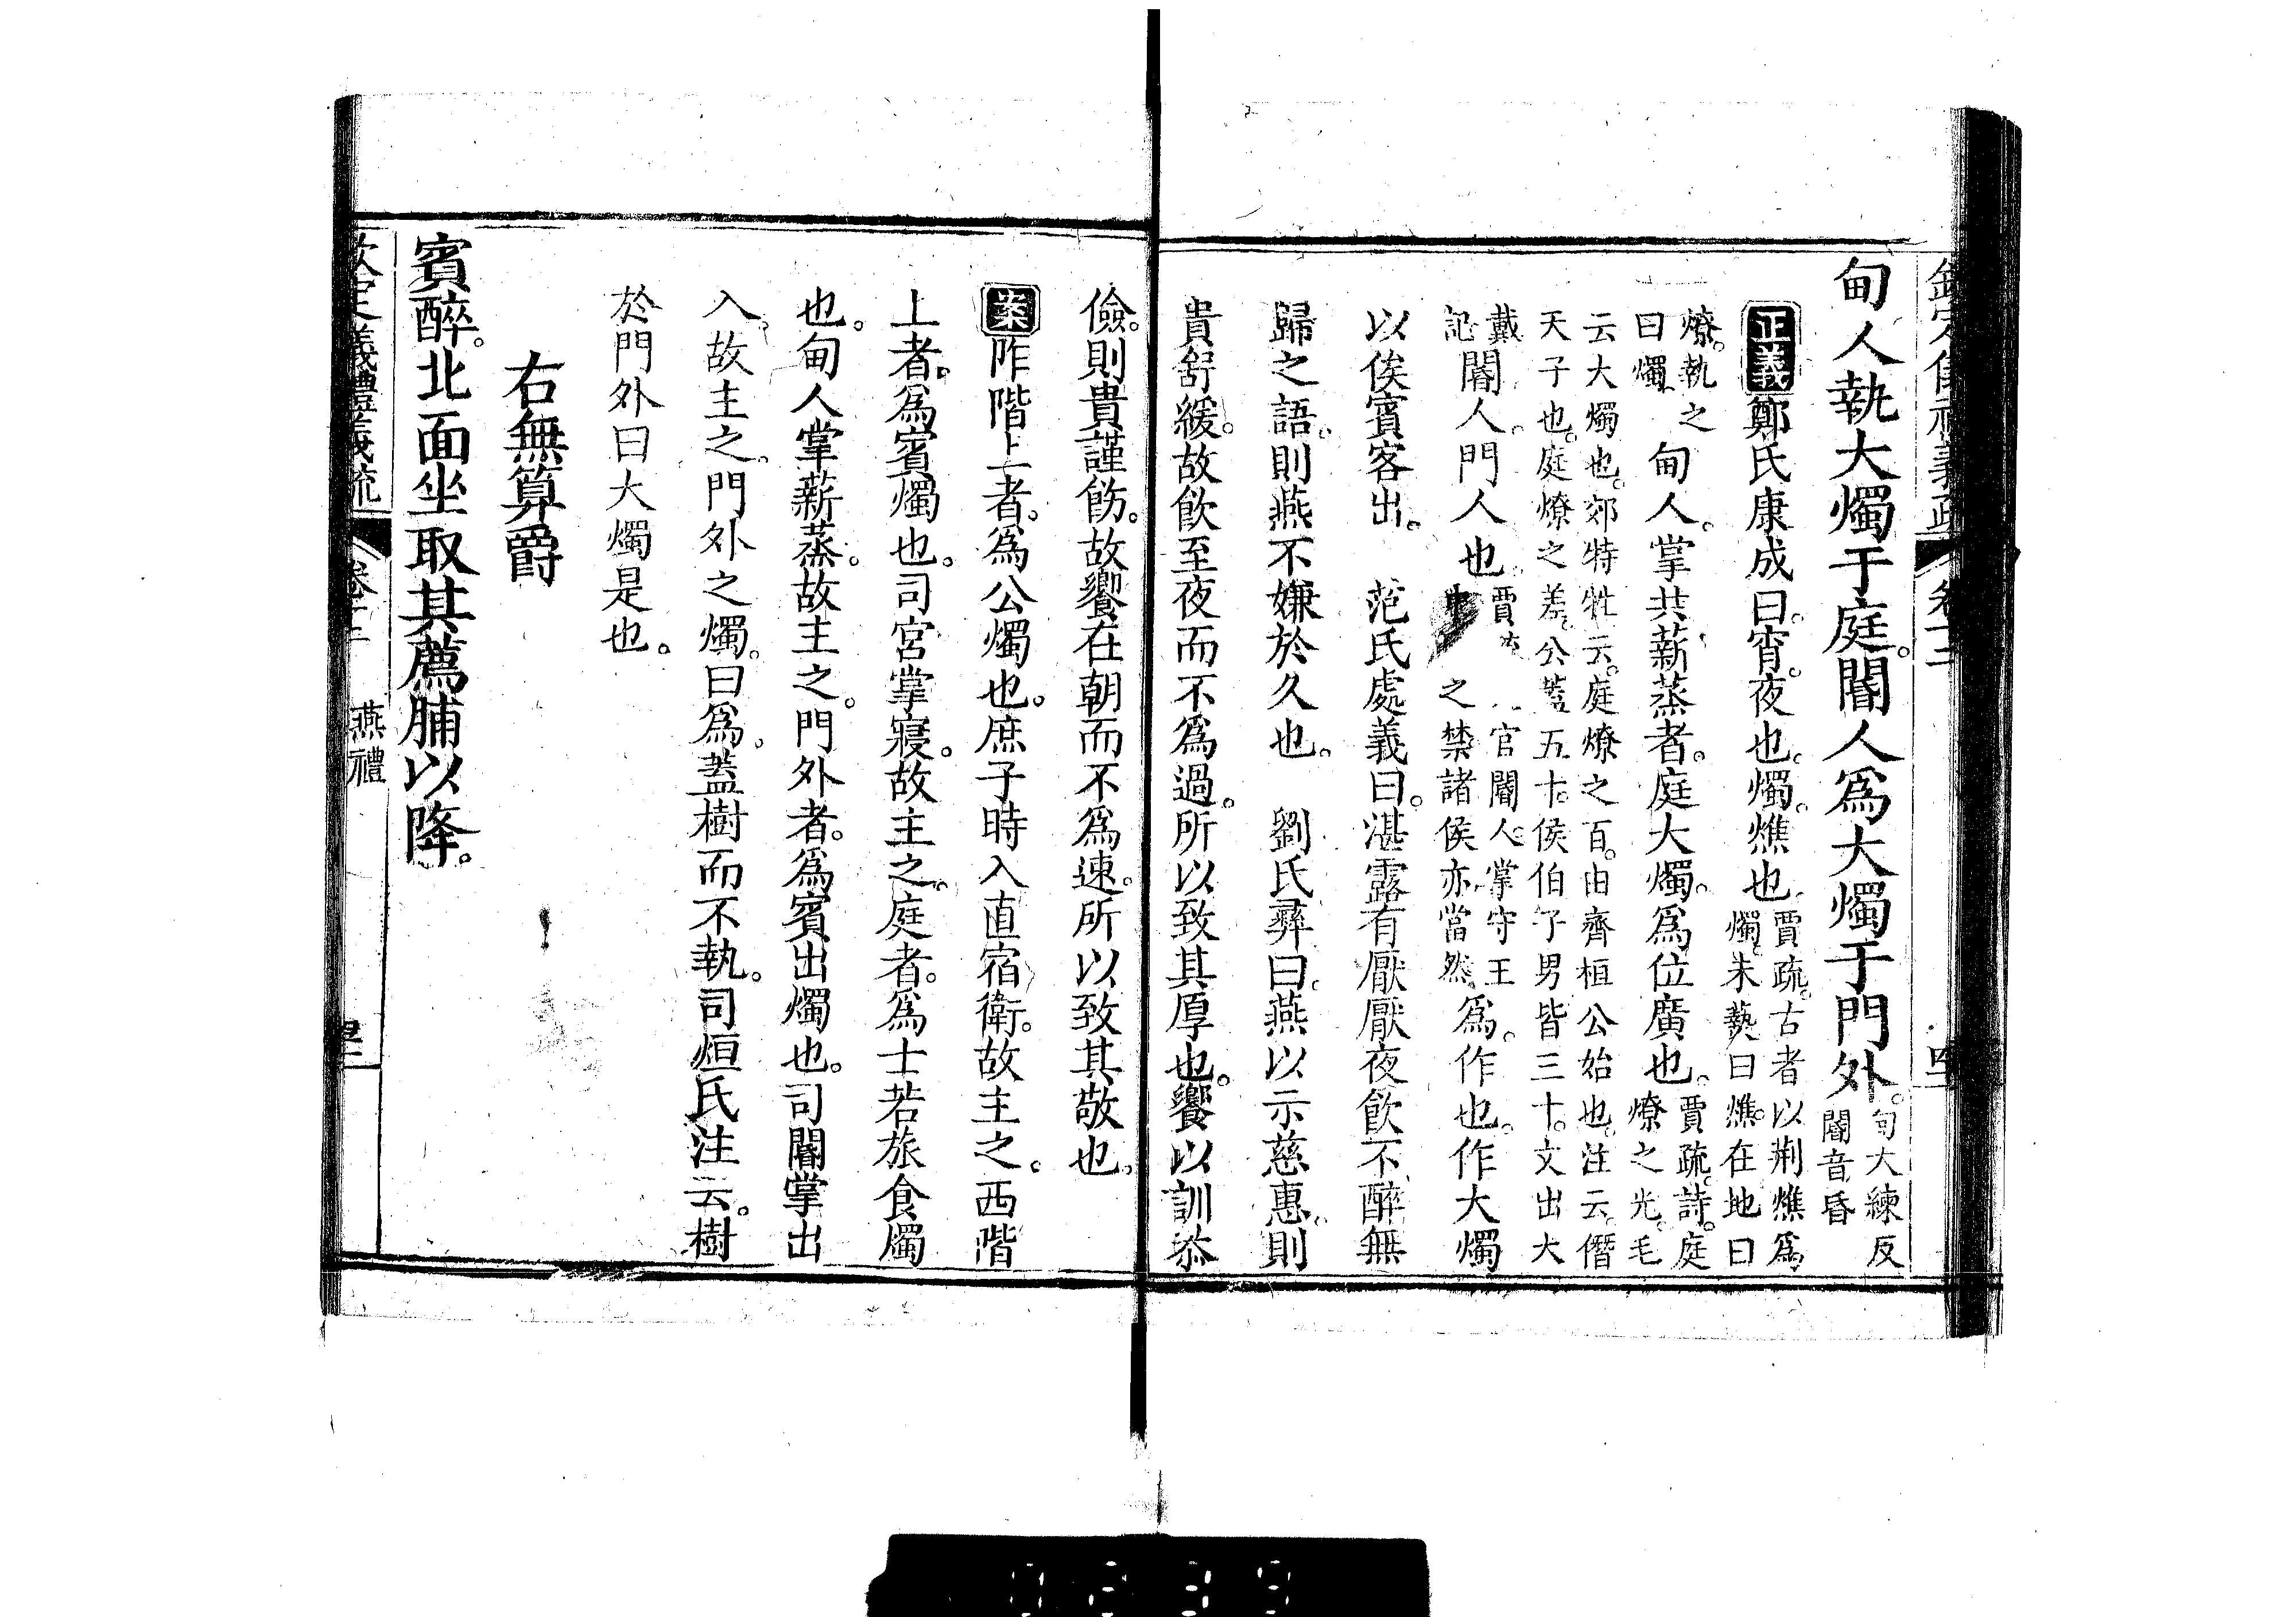 甸人執大燭于庭。閽人爲大燭于門外。甸大練反閽音昏
正義鄭氏康成曰。宵。夜也。燭。燋也。賈疏。古者以荆燋爲燭。未爇曰燋。在地曰
燎。執之曰燭。甸人。掌共薪蒸者。庭大燭。爲位廣也。賈疏。詩。庭燎之光。毛
云大燭也。郊特牲云。庭燎之百。由齊桓公始也。注云。僭天子也。庭燎之差。公蓋五十。侯伯子男皆三十。文出大
戴記閽人。門人也賈官閽人。掌守王之禁諸侯亦當然。爲。作也。作大燭
以俟賓客出。 范氏處義曰。湛露有厭厭夜飲不醉無
歸之語。則燕不嫌於久也。 劉氏彝曰。燕以示慈惠。則
貴舒緩。故飲至夜而不爲過。所以致其厚也。饗以訓恭
儉。則貴謹飭。故饗在朝而不爲速。所以致其敬也。
案阼階上者。爲公燭也。庶子時入直宿衛。故主之。西階
上者。爲賓燭也。司宮掌寢。故主之。庭者。爲士若旅食燭
也。甸人掌薪蒸。故主之。門外者。爲賓出燭也。司閽掌出
入。故主之。門外之燭。曰爲。蓋樹而不執。司烜氏注云。樹
於門外曰大燭是也。
右無算爵
賓醉。北面坐取其薦脯以降。
欽定儀禮義疏 卷十二 燕禮